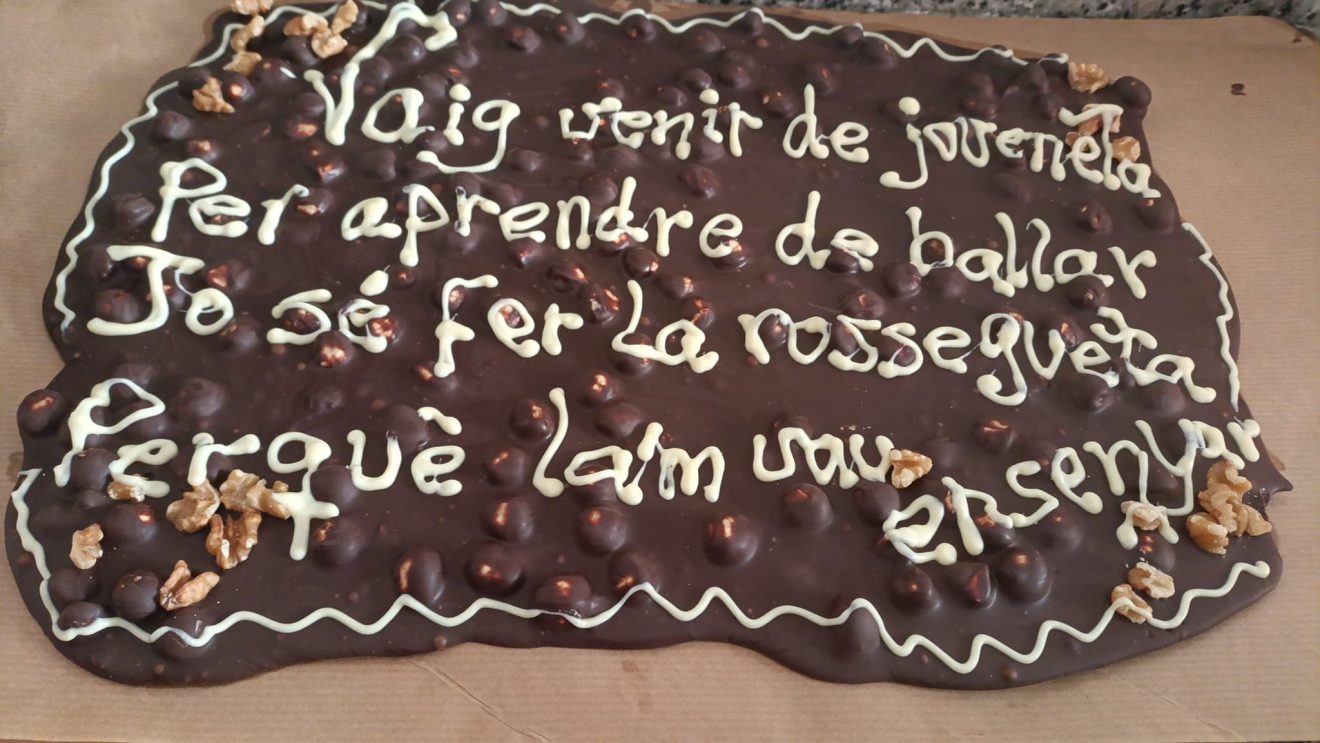 Vaig venir de joveneta
Per aprendre de ballar
Jo sé fer la rossegueta
Perquè la'm vau ensenyar